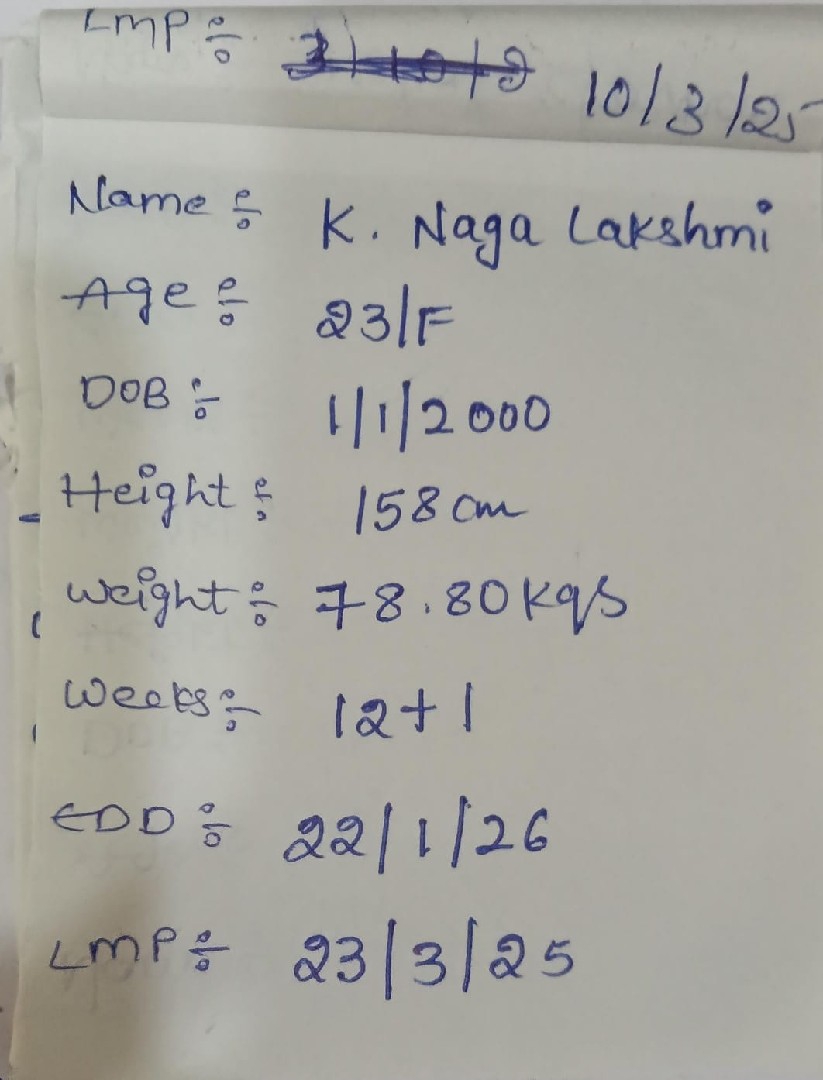 LMP : 10/3/25
Name : K. Naga Lakshmi
Age : 23/F
DOB : 1/1/2000
Height : 158 cm
Weight : 78.80 Kgs
Weeks : 12+1
EDD : 22/1/26
LMP : 23/3/25